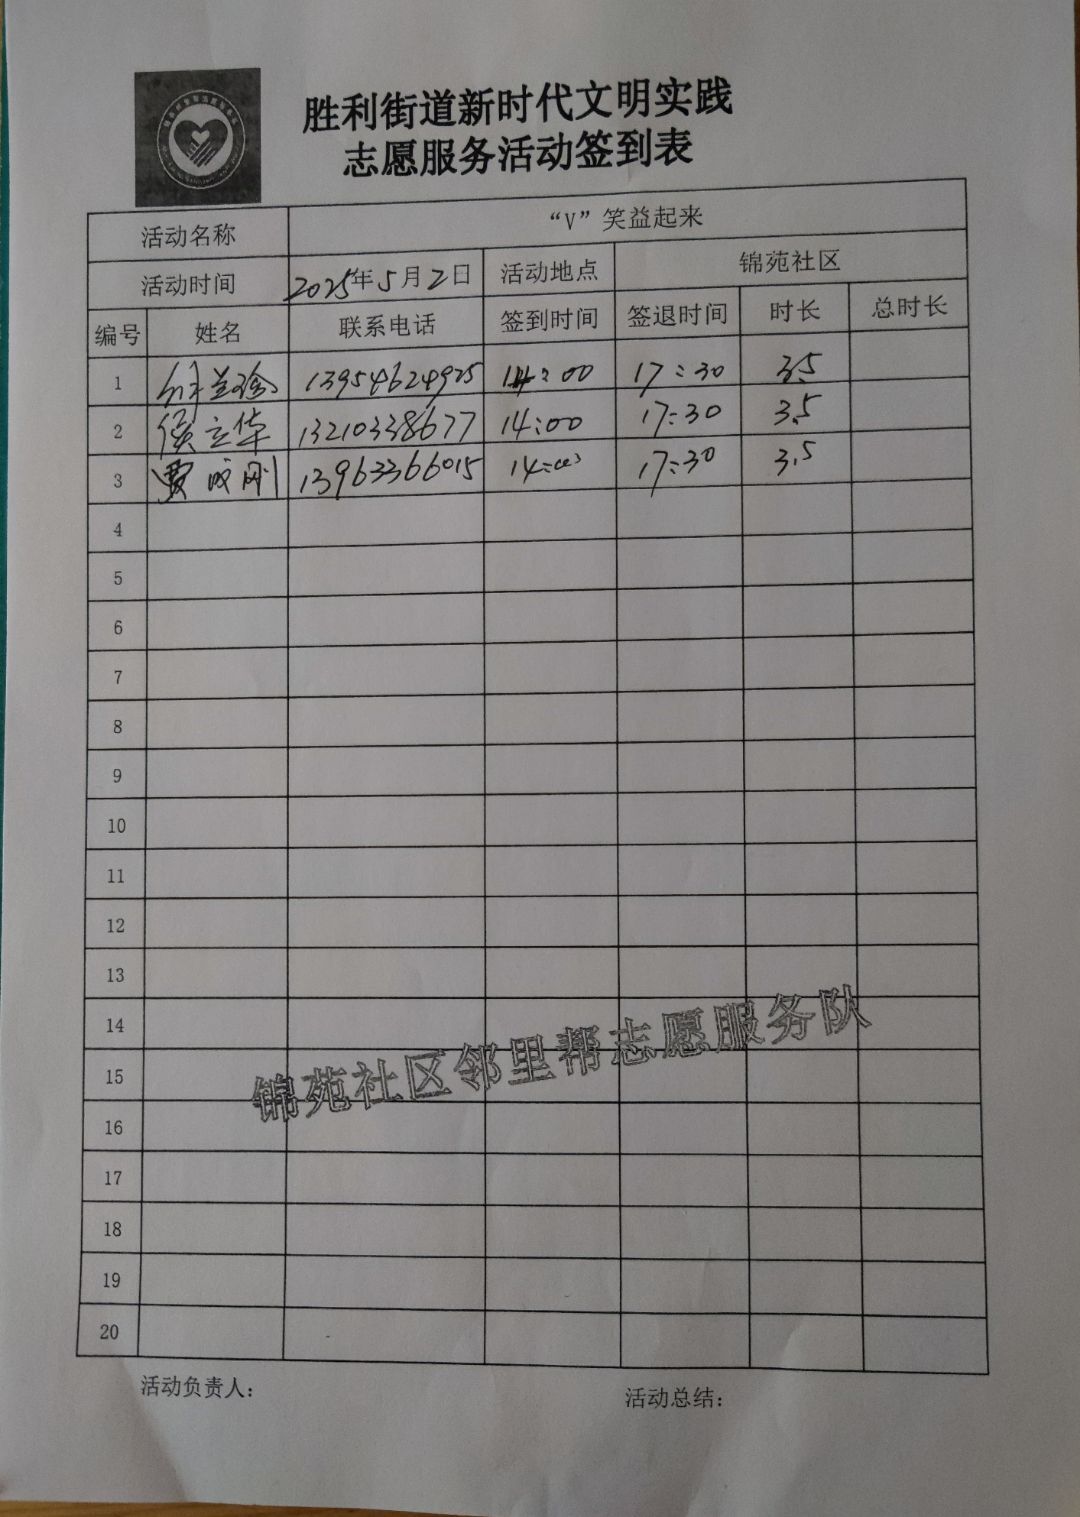 胜利街道新时代文明实践
志愿服务活动签到表
活动名称 “V”笑益起来
活动时间 2025年5月2日 活动地点 锦苑社区
编号 姓名 联系电话 签到时间 签退时间 时长 总时长
1 13954624925 14:00 17:30 3.5
2 侯立华 13210338677 14:00 17:30 3.5
3 费成刚 13963366015 14:00 17:30 3.5
4
5
6
7
8
9
10
11
12
13
14
15
16
17
18
19
20
锦苑社区邻里帮志愿服务队
活动负责人: 活动总结: